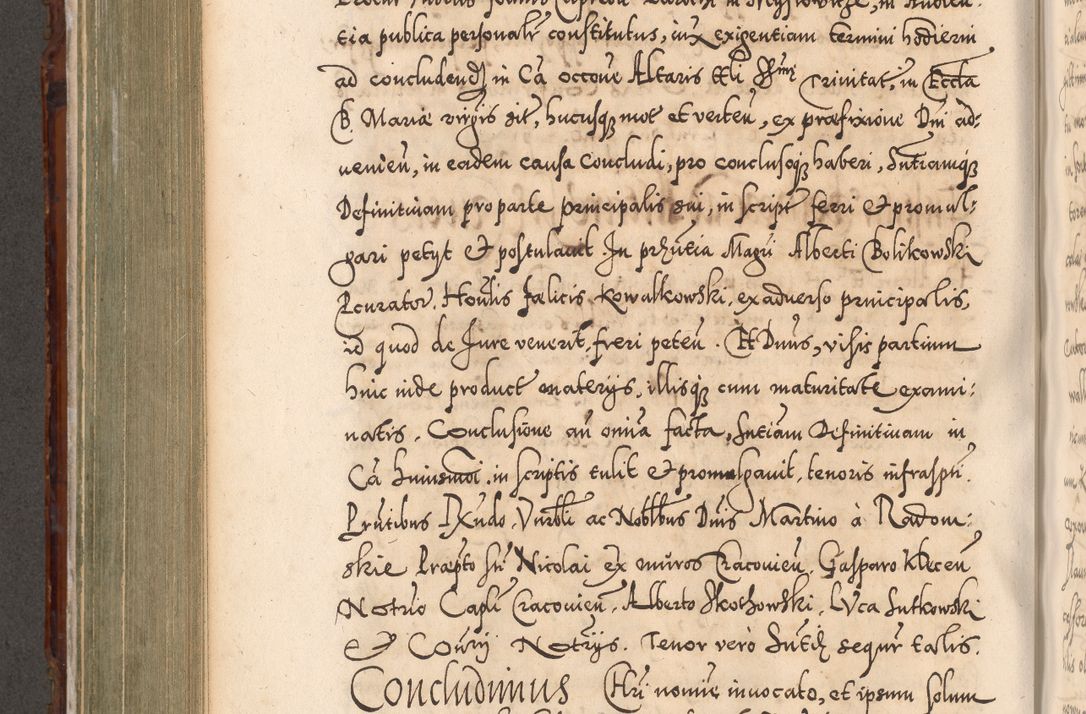 tia publica personalr constitutus, iux exigentiam termini hodierni
ad concludend in Ca occõne Altaris ttli SSmę Trinitat, in Eccla
B. Mariæ virgīs sit, hucusq mot et verteñ, ex præfixione Dnī ad-
venieñ, in eadem causa Concludi, pro conclusoq haberi, Sntiamq
Definitivam pro parte principalis sui, in script ferri et promul-
gari petyt et postulavit. In prñtia Magrī Alberti Bolikowski
Pcurator. Honlis Fælicis Kowalkowski, ex adverso principalis,
id quod de Jure venerit, freri peteñ. Et Dnus, visis partium
hinc inde product materÿs, illisq cum maturitate exami:
natis. Conclusione añ omnia facta, Sntiam Definitivam in
Ca huiusmoi, in scriptis tulit et promulgavit, tenoris infrasptī.
Prntibus Dxndo. Vnrbli ac Noblbus Dnis Martino à Radom:
skie Præpto Sti Nicolai ex muros Cracovieñ. Gasparo Klecen
Notrio Capli Cracovieñ. Alberto Skothowski. Luca Sutkowski
et Cowrÿ Notrÿs. Tenor verò Sntię sequr talis.
Concludimus Chri nomine invocato, et ipsum solum